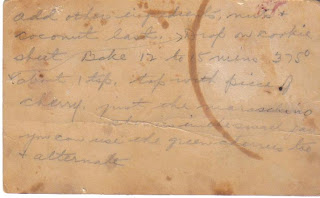 add other ingredients, nuts &
coconut last. Drop on cookie
sheet Bake 12 to 15 mins 375°
about 1 tsp. top with piece of
cherry. just the maraschino
you can use the green cherries too
& alternate